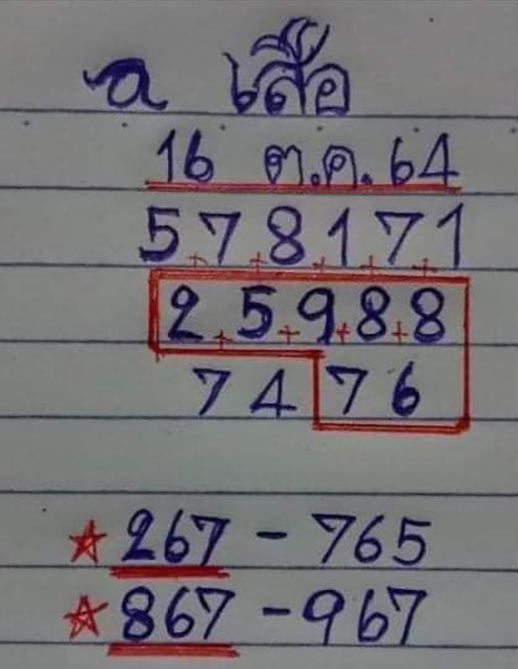 a เสือ
16 ต.ค. 64
5 7 8 1 7 1
+ + + + +
2 5 9 8 8
+ + + +
7 4 7 6
267 - 765
867 - 967